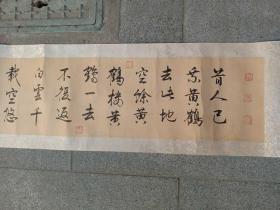 昔人已
乘黄鶴
去此地
空餘黄
鶴樓黄
鶴一去
不復返
白雲千
載空悠